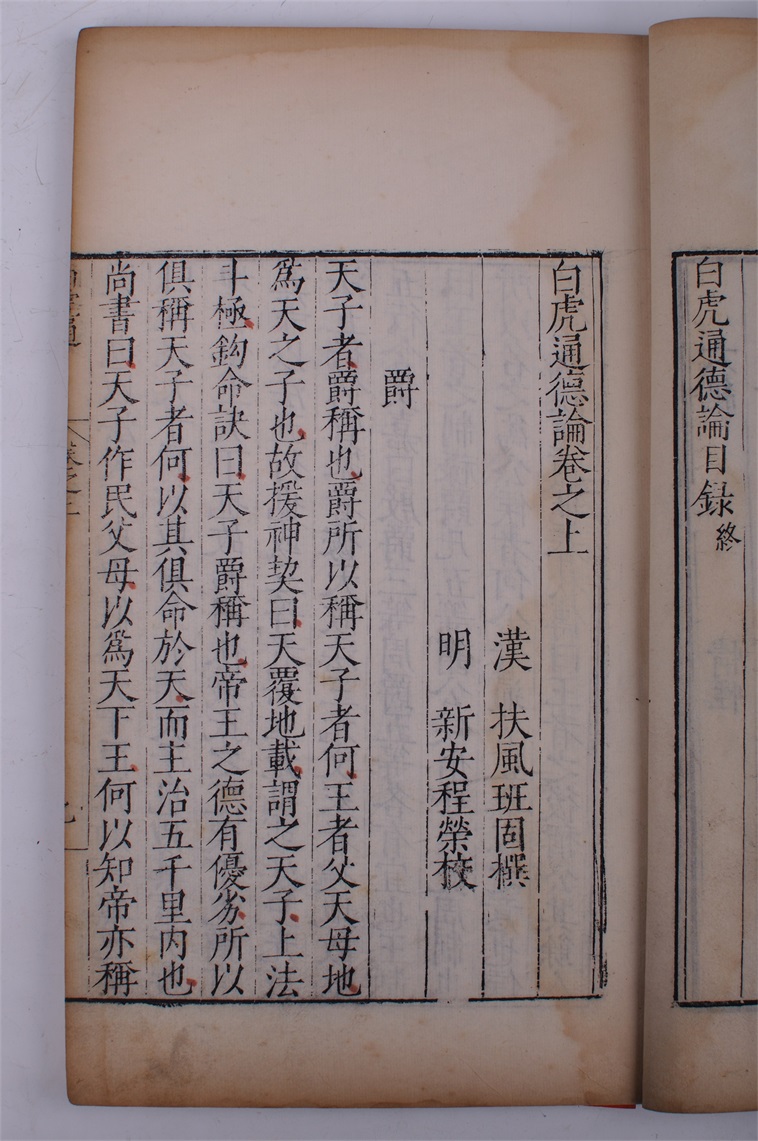 白虎通德論目録終
白虎通德論卷之上
漢 扶風班固撰
明 新安程榮校
爵
天子者爵稱也爵所以稱天子者何王者父天母地
爲天之子也故援神契曰天覆地載謂之天子上法
斗極鈎命訣曰天子爵稱也帝王之德有優劣所以
俱稱天子者何以其俱命於天而主治五千里内也
尚書曰天子作民父母以爲天下王何以知帝亦稱